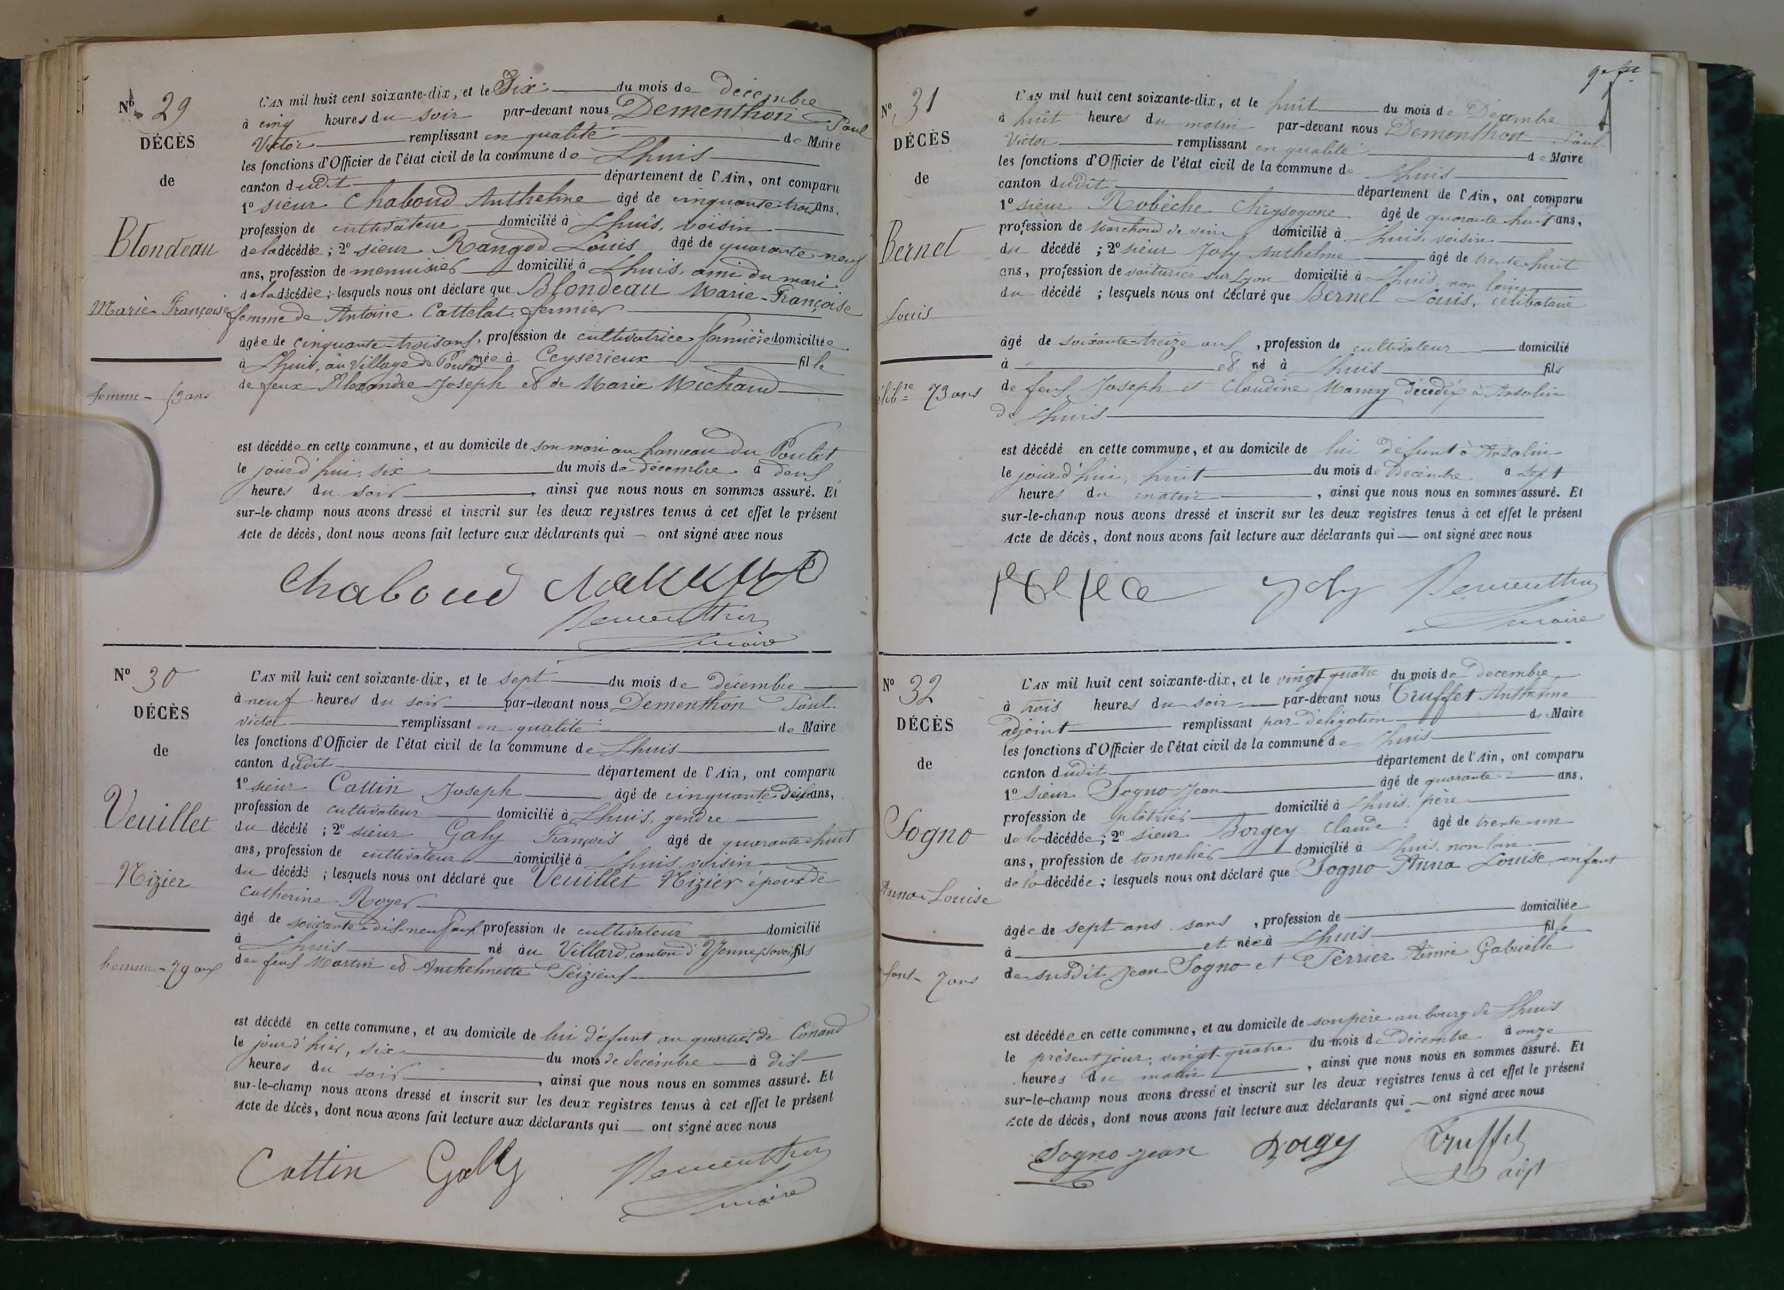 Nº 29
DÉCÈS
de
Blondeau
Marie-Françoise
femme - 53 ans
L'AN mil huit cent soixante-dix, et le Six du mois de décembre
à cinq heures du soir par-devant nous Dementhon Paul
Victor remplissant en qualité de Maire
les fonctions d'Officier de l'état civil de la commune de Lhuis
canton dudit département de l'Ain, ont comparu
1º sieur Chaboud Anthelme âgé de cinquante-trois ans,
profession de cultivateur domicilié à Lhuis, voisin
de la décédée ; 2º sieur Rangod Louis âgé de quarante neuf
ans, profession de menuisier domicilié à Lhuis, ami du mari
de la décédée ; lesquels nous ont déclaré que Blondeau Marie-Françoise
femme de Antoine Cattelat fermier
âgée de cinquante-trois ans, profession de cultivatrice fermière domiciliée
à Lhuis, au Village du née à Ceyserieux fille
de feux Alexandre Joseph et de Marie Michaud
est décédée en cette commune, et au domicile de son mari au hameau du Poulet
le jourd'hui, six du mois de décembre à deux
heures du soir, ainsi que nous nous en sommes assuré. Et
sur-le-champ nous avons dressé et inscrit sur les deux registres tenus à cet effet le présent
Acte de décès, dont nous avons fait lecture aux déclarants qui ont signé avec nous
Chaboud
Dementhon
maire
Nº 30
DÉCÈS
de
Veuillet
Nizier
homme - 79 ans
L'AN mil huit cent soixante-dix, et le sept du mois de décembre
à neuf heures du soir par-devant nous Dementhon Paul
Victor remplissant en qualité de Maire
les fonctions d'Officier de l'état civil de la commune de Lhuis
canton dudit département de l'Ain, ont comparu
1º sieur Cattin Joseph âgé de cinquante ans,
profession de cultivateur domicilié à Lhuis, gendre
du décédé ; 2º sieur Galy François âgé de quarante-huit
ans, profession de cultivateur domicilié à Lhuis, voisin
du décédé ; lesquels nous ont déclaré que Veuillet Nizier époux de
Catherine Royer
âgé de soixante-dix-neuf ans, profession de cultivateur domicilié
à Lhuis né au Villard, canton d'Yenne, fils
de feus Martin et Anthelmette
est décédé en cette commune, et au domicile de lui défunt au quartier de Conand
le jour d'hier, six du mois de décembre à dix
heures du soir, ainsi que nous nous en sommes assuré. Et
sur-le-champ nous avons dressé et inscrit sur les deux registres tenus à cet effet le présent
Acte de décès, dont nous avons fait lecture aux déclarants qui ont signé avec nous
Cattin Galy Dementhon
maire
Nº 31
DÉCÈS
de
Bernet
Louis
73 ans
L'AN mil huit cent soixante-dix, et le huit du mois de Décembre
à huit heures du matin par-devant nous Dementhon Paul
Victor remplissant en qualité de Maire
les fonctions d'Officier de l'état civil de la commune de Lhuis
canton dudit département de l'Ain, ont comparu
1º sieur Robèche Chrysogone âgé de quarante huit ans,
profession de Marchand de vin domicilié à Lhuis, voisin
du décédé ; 2º sieur Joly Anthelme âgé de trente-huit
ans, profession de voiturier sur Lyon domicilié à Lhuis, non loin
du décédé ; lesquels nous ont déclaré que Bernet Louis, célibataire
âgé de soixante-treize ans, profession de cultivateur domicilié
à et né à Lhuis fils
de feus Joseph et Claudine Mamy décédés à Ansolin
de Lhuis
est décédé en cette commune, et au domicile de lui défunt à Ansolin
le jourd'hui, huit du mois de Décembre à sept
heures du matin, ainsi que nous nous en sommes assuré. Et
sur-le-champ nous avons dressé et inscrit sur les deux registres tenus à cet effet le présent
Acte de décès, dont nous avons fait lecture aux déclarants qui ont signé avec nous
Joly Dementhon
maire
Nº 32
DÉCÈS
de
Sogno
Anna-Louise
7 ans
L'AN mil huit cent soixante-dix, et le vingt-quatre du mois de décembre
à trois heures du soir par-devant nous Truffet Anthelme
adjoint remplissant par délégation de Maire
les fonctions d'Officier de l'état civil de la commune de Lhuis
canton dudit département de l'Ain, ont comparu
1º sieur Sogno Jean âgé de quarante ans,
profession de plâtrier domicilié à Lhuis, père
de la décédée ; 2º sieur Borgey Claude âgé de trente-un
ans, profession de tonnelier domicilié à Lhuis, non loin
de la décédée ; lesquels nous ont déclaré que Sogno Anna Louise, enfant
âgée de sept ans sans, profession de domiciliée
à et née à Lhuis fille
de susdit Jean Sogno et Perrier Aimée Gabrielle
est décédée en cette commune, et au domicile de son père au bourg de Lhuis
le présent jour, vingt-quatre du mois de décembre à onze
heures du matin, ainsi que nous nous en sommes assuré. Et
sur-le-champ nous avons dressé et inscrit sur les deux registres tenus à cet effet le présent
Acte de décès, dont nous avons fait lecture aux déclarants qui ont signé avec nous
Sogno Jean Truffet
adjt